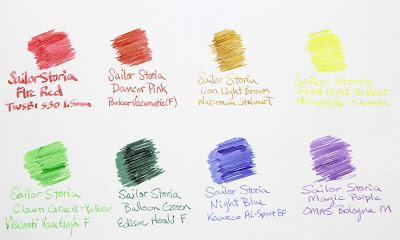 Sailor Storia
Fire Red
TWSBI 530 1.5mm
Sailor Storia
Dancer Pink
Parker Vacumatic (F)
Sailor Storia
Lion Light Brown
Waterman Stalwart
Sailor Storia
Spotlight Yellow
0.6mm
Sailor Storia
Clown Green-Yellow
Visconti Van Gogh F
Sailor Storia
Balloon Green
Edison Herald F
Sailor Storia
Night Blue
Kaweco AL-Sport EF
Sailor Storia
Magic Purple
OMAS Bologna M